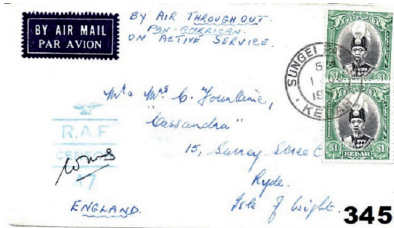 BY AIR MAIL
PAR AVION
BY AIR THROUGHOUT
PAN-AMERICAN.
ON ACTIVE SERVICE.
SUNGEI
KEDAH
$1
R.A.F
CENSOR
17
"Cassandra"
15, Surrey Street
Ryde.
Isle of Wight.
ENGLAND.
KEDAH
$1
345